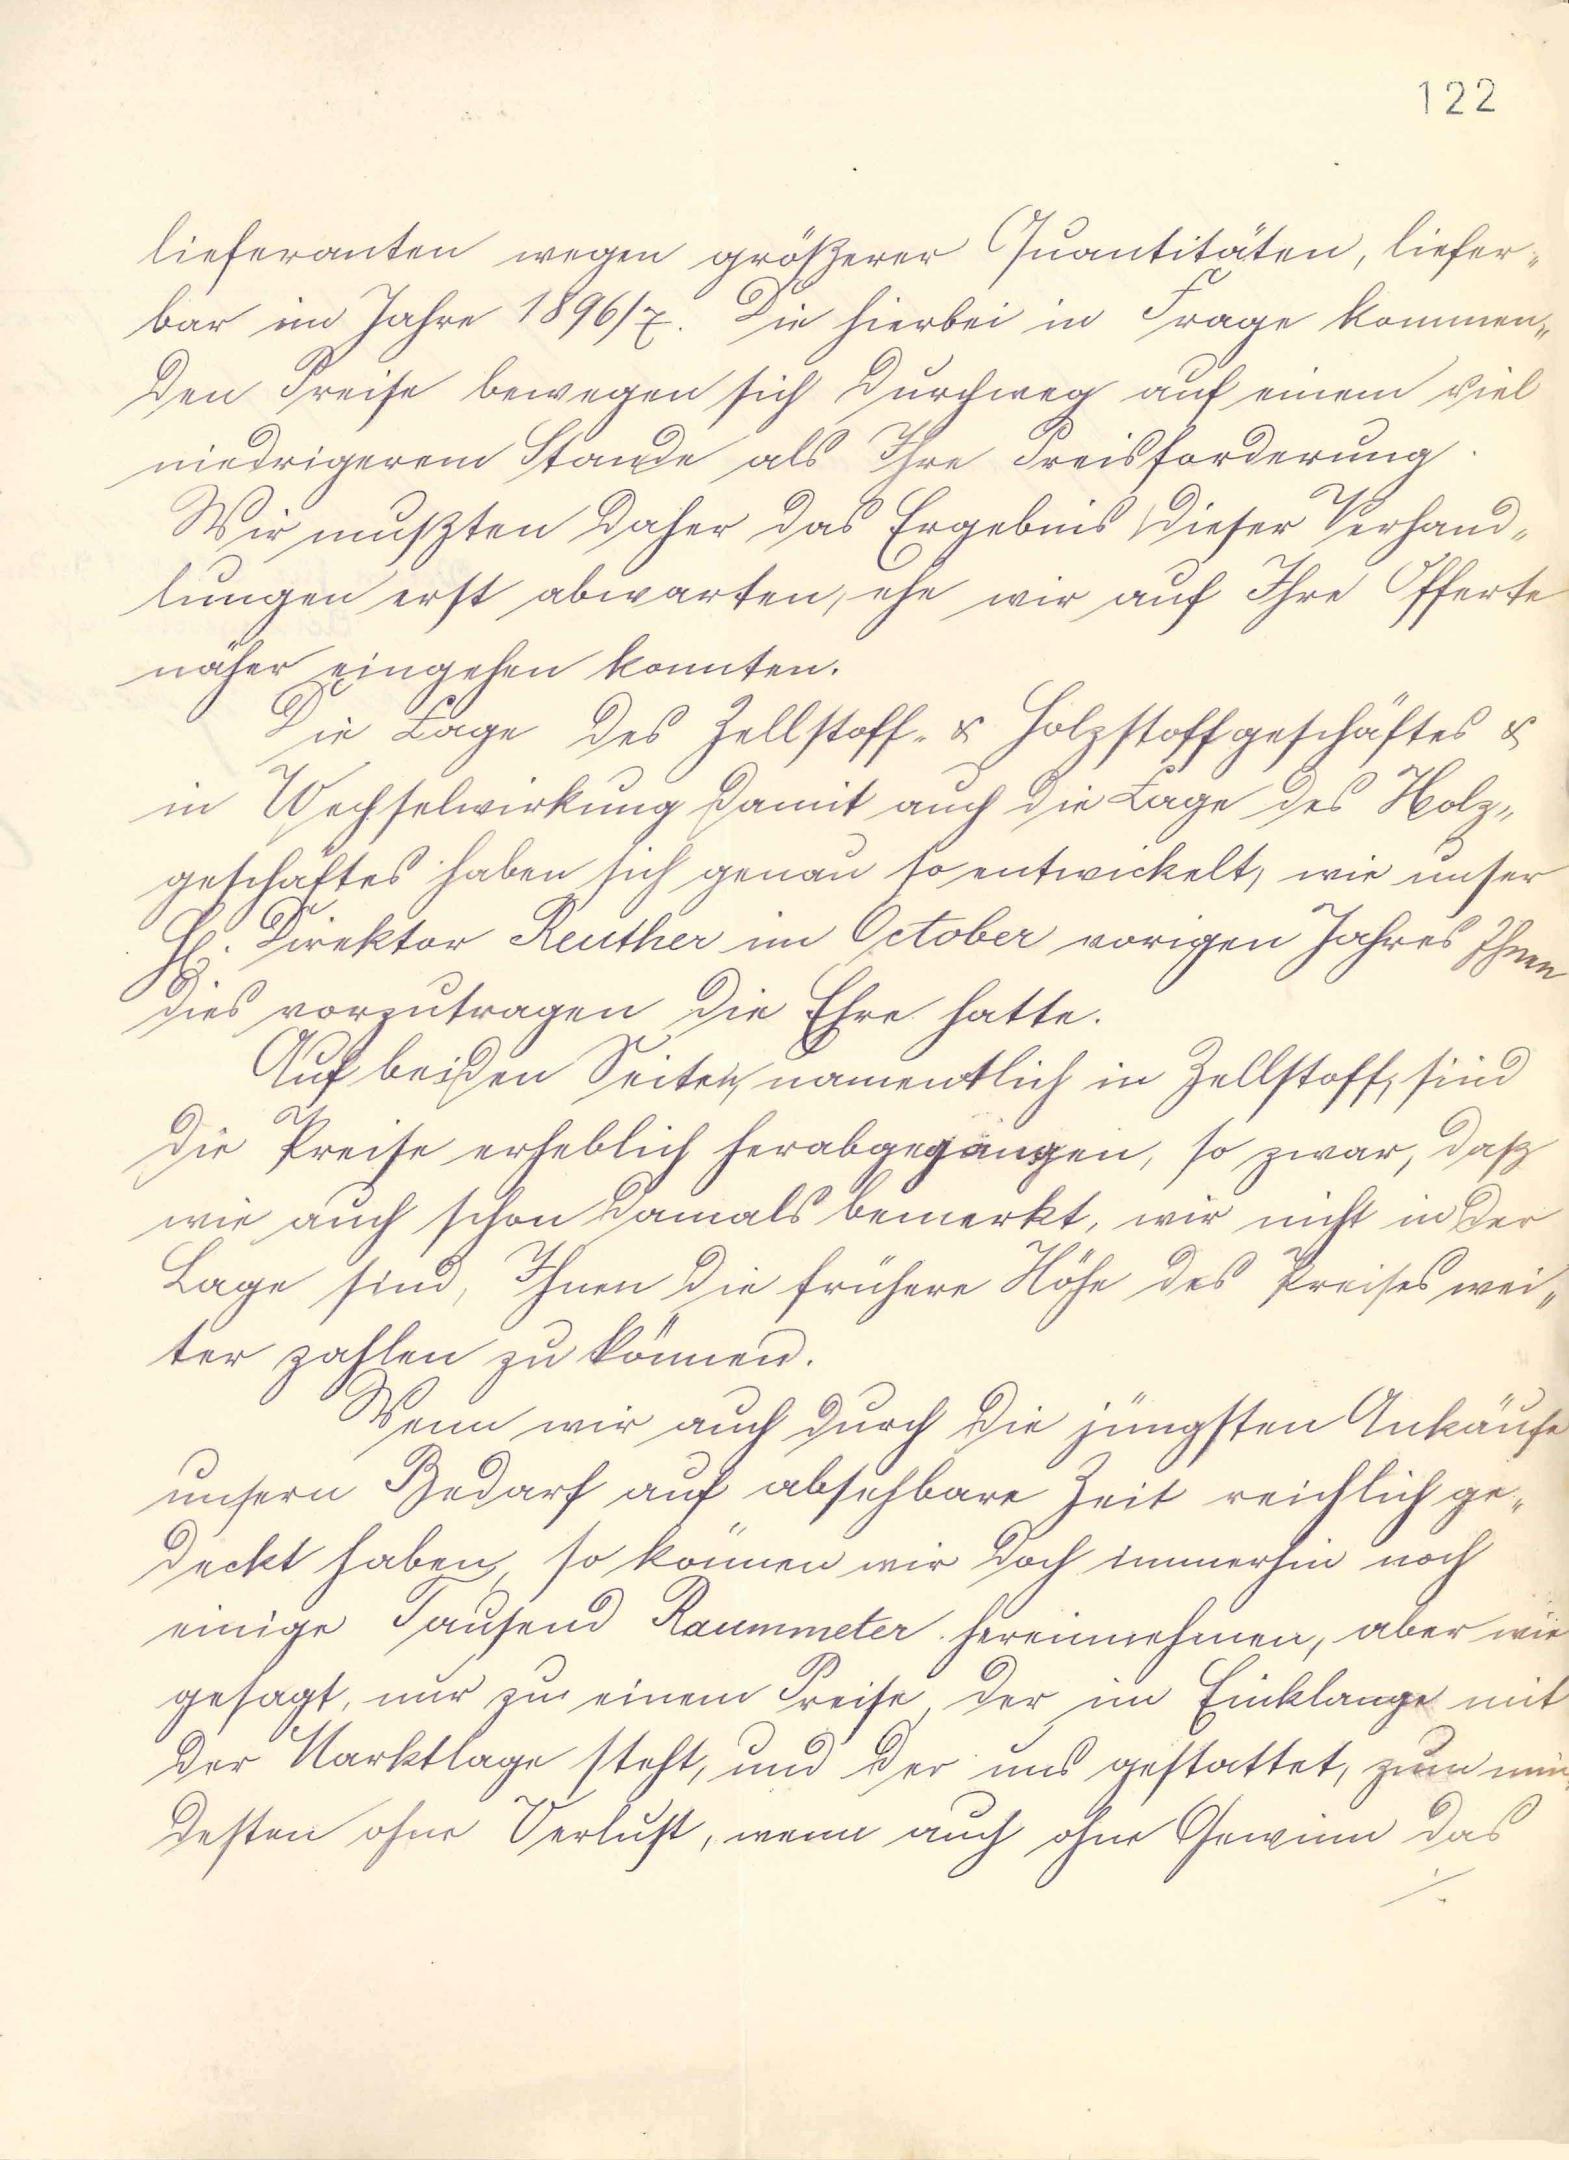 122
lieferanten wegen größerer Quantitäten, liefer-
bar im Jahre 1896/7. Die hierbei in Frage kommen-
den Preise bewegen sich durchweg auf einem viel
niedrigerem Stande als Ihre Preisforderung.
Wir mußten daher das Ergebnis dieser Verhand-
lungen erst abwarten, ehe wir auf Ihre Offerte
näher eingehen konnten.
Die Lage des Zellstoff- & Holzstoffgeschäftes &
in Wechselwirkung damit auch die Lage des Holz-
geschäftes haben sich genau so entwickelt, wie unser
H. Direktor Reuther im October vorigen Jahres Ihnen
dies vorzutragen die Ehre hatte.
Auf beiden Seiten, namentlich in Zellstoff, sind
die Preise erheblich herabgegangen, so zwar, daß
wie auch schon damals bemerkt, wir nicht in der
Lage sind, Ihnen die frühere Höhe des Preises wei-
ter zahlen zu können.
Wenn wir auch durch die jüngsten Ankäufe
unsern Bedarf auf absehbare Zeit reichlich ge-
deckt haben, so können wir doch immerhin noch
einige Tausend Raummeter hereinnehmen, aber wie
gesagt, nur zu einem Preise, der im Einklange mit
der Marktlage steht, und der uns gestattet, zum min-
desten ohne Verlust, wenn auch ohne Gewinn das
./.